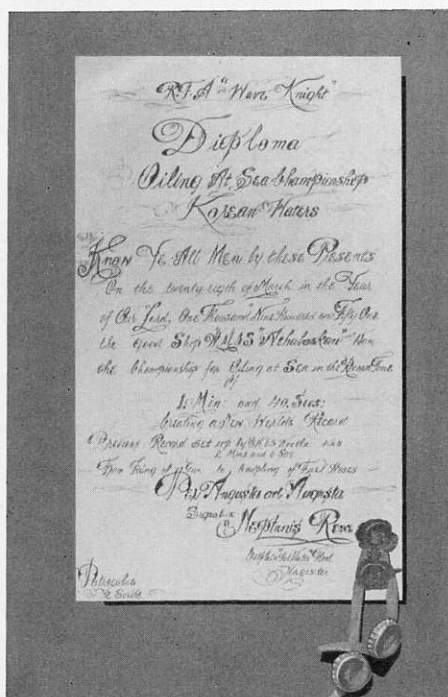 R.F.A "Wave Knight"
Diploma
Oiling At Sea Championship
Korean Waters
Know Ye All Men by these Presents
On the twenty sixth of March in the Year
of Our Lord, One Thousand Nine Hundred and Fifty One
the Good Ship "Athabaskan" Won
the Championship for Oiling at Sea in the Record Time
of
1 Min and 40 Secs:
Creating a New Worlds Record
Previous Record set up by was
2 Mins and 6
From Firing of Gun to Coupling of Fuel Hoses
Per Angusta ad Augusta
Signatus
Neptunis Rex
Magister